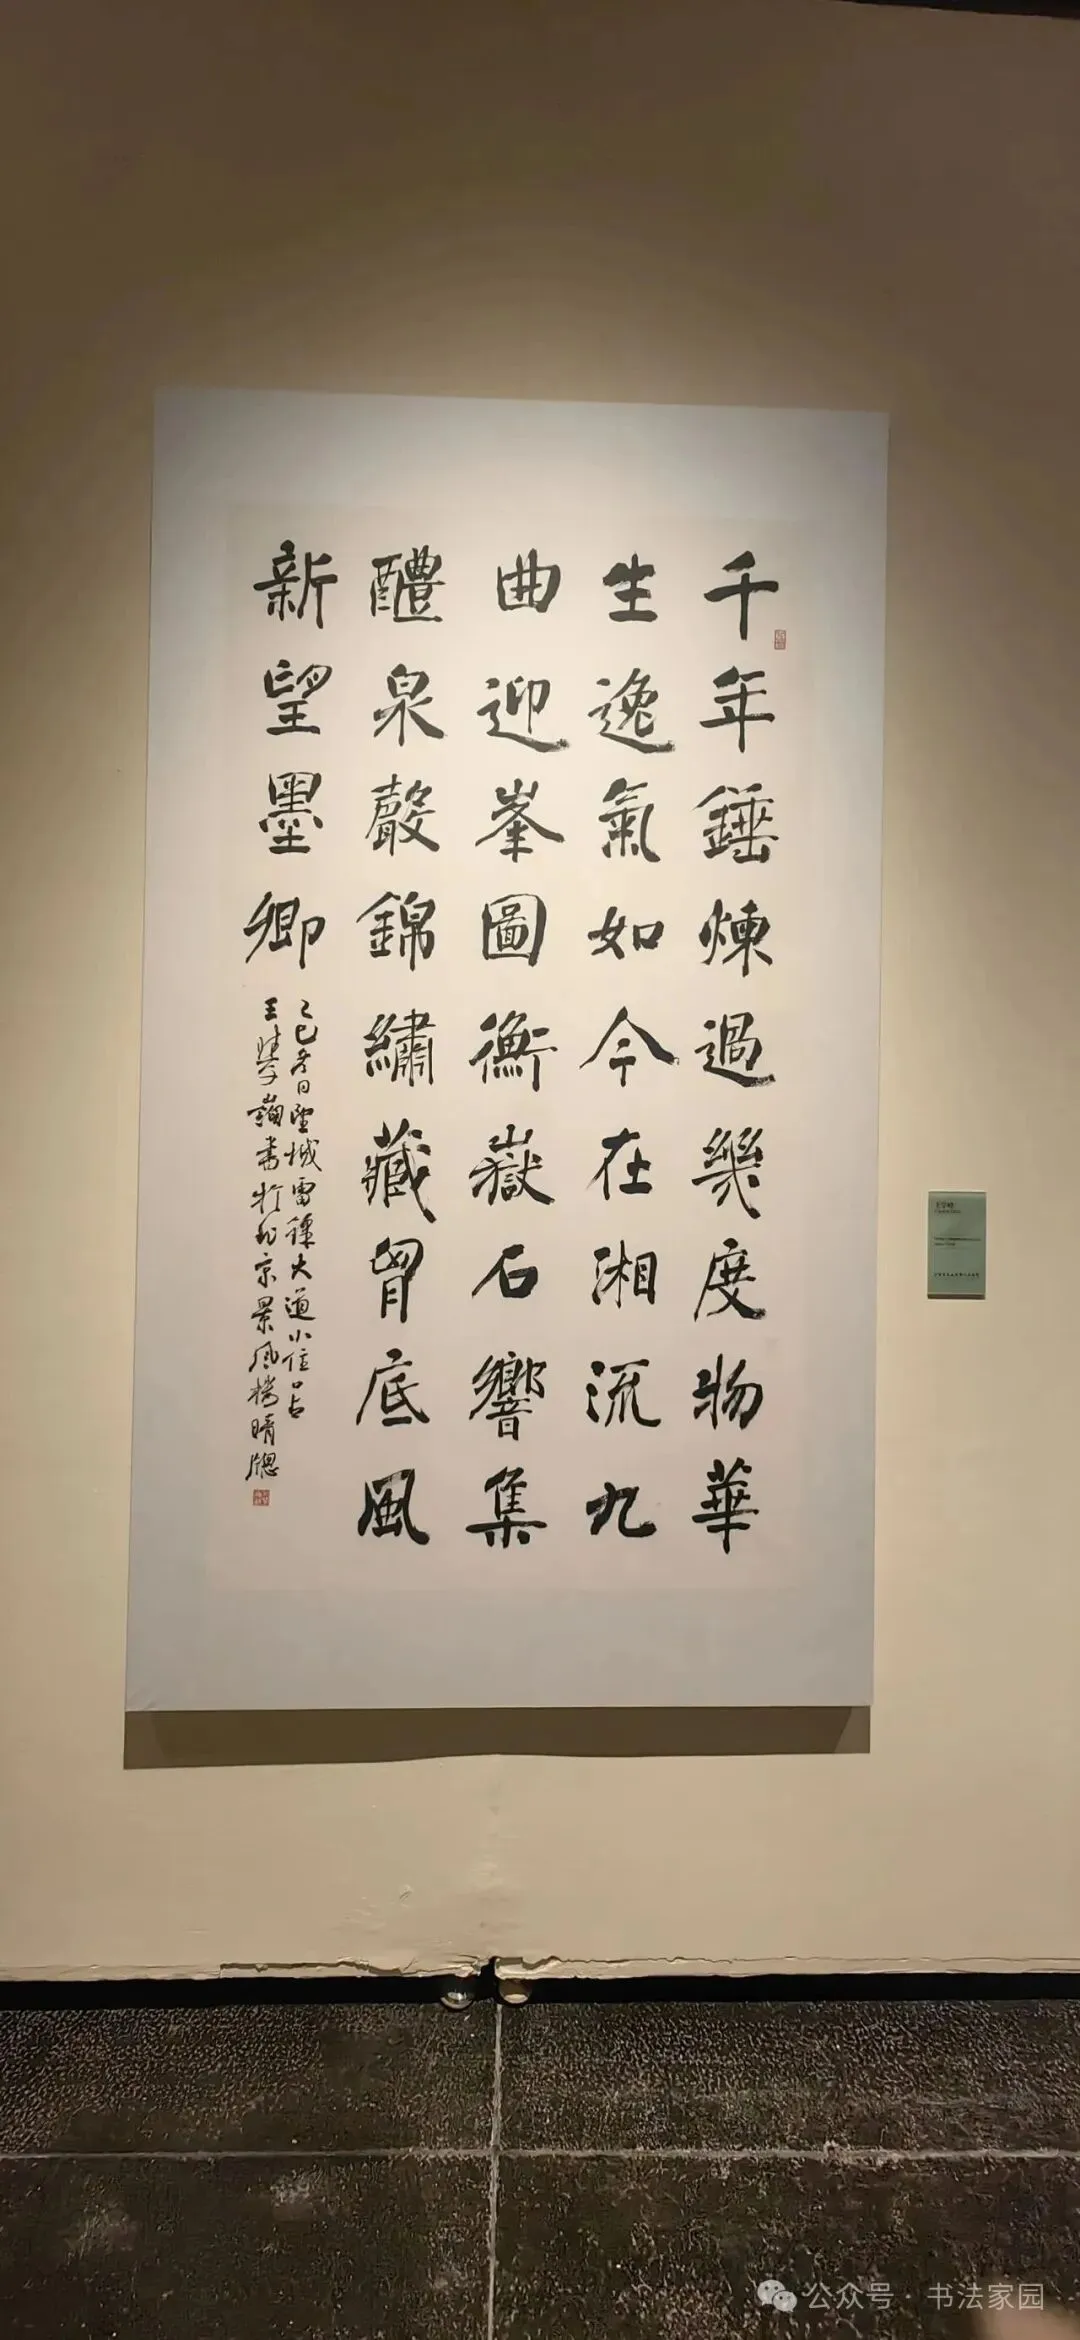 千年錘煉過幾度物華
生逸氣如今在湘流九
曲迎峯圖衡嶽石響集
醴泉聲錦繡藏胃底風
新望墨卿
乙巳冬日望城雷鋒大道小住口占
王學嶺書於北京景風樓晴窗
公众号 · 书法家园